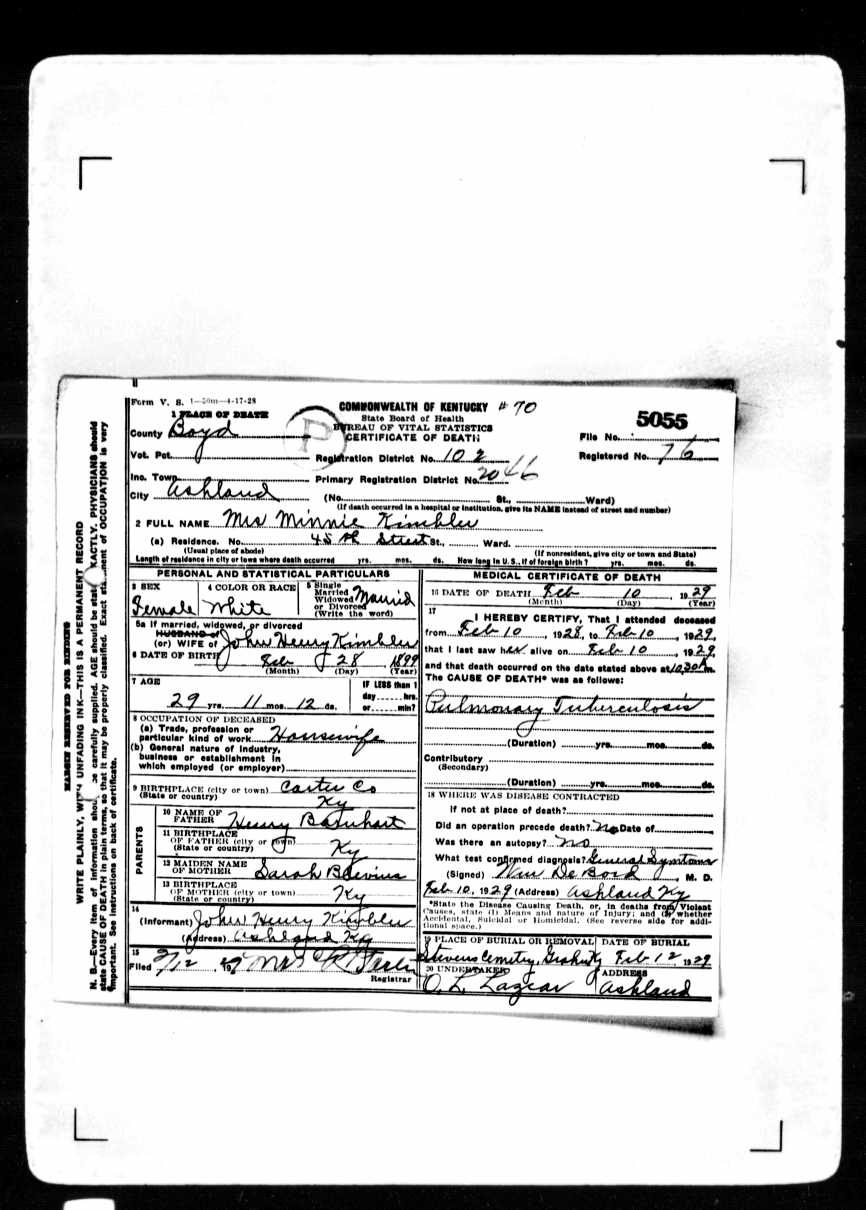 Form V. S. 1—50m—4-17-28
COMMONWEALTH OF KENTUCKY # 70
State Board of Health
BUREAU OF VITAL STATISTICS
CERTIFICATE OF DEATH
5055
File No.
Registered No. 76
1 PLACE OF DEATH
County Boyd
Vot. Pct.
Registration District No. 102
Inc. Town
Primary Registration District No. 2046
City Ashland (No. St., Ward)
(If death occurred in a hospital or institution, give its NAME instead of street and number)
2 FULL NAME Mrs Minnie Kimbler
(a) Residence. No. 45 th Street St., Ward.
(Usual place of abode) (If nonresident, give city or town and State)
Length of residence in city or town where death occurred yrs. mos. ds. How long in U. S., if of foreign birth? yrs. mos. ds.
PERSONAL AND STATISTICAL PARTICULARS
3 SEX
Female
4 COLOR OR RACE
White
5 Single
Married
Widowed
or Divorced
(Write the word)
Married
5a If married, widowed, or divorced
HUSBAND of
(or) WIFE of John Henry Kimbler
6 DATE OF BIRTH Feb 28 1899
(Month) (Day) (Year)
7 AGE
29 yrs. 11 mos. 12 ds.
IF LESS than 1
day hrs.
or min?
8 OCCUPATION OF DECEASED
(a) Trade, profession or
particular kind of work Housewife
(b) General nature of industry,
business or establishment in
which employed (or employer)
9 BIRTHPLACE (city or town) Carter Co
(State or country) Ky
PARENTS
10 NAME OF
FATHER Henry Barnhart
11 BIRTHPLACE
OF FATHER (city or town)
(State or country) Ky
12 MAIDEN NAME
OF MOTHER Sarah Blevins
13 BIRTHPLACE
OF MOTHER (city or town)
(State or country) Ky
14
(Informant) John Henry Kimbler
(Address) Ashland Ky
15
Filed 2/12, 19 Mrs
Registrar
MEDICAL CERTIFICATE OF DEATH
16 DATE OF DEATH Feb 10 1929
(Month) (Day) (Year)
17
I HEREBY CERTIFY, That I attended deceased
from Feb 10, 1928, to Feb 10, 1929,
that I last saw her alive on Feb 10, 1929,
and that death occurred on the date stated above at 10.30 A m.
The CAUSE OF DEATH* was as follows:
Pulmonary Tuberculosis
(Duration) yrs. mos. ds.
Contributory
(Secondary)
(Duration) yrs. mos. ds.
18 WHERE WAS DISEASE CONTRACTED
If not at place of death?
Did an operation precede death? No Date of
Was there an autopsy? No
What test confirmed diagnosis? General Symtoms
(Signed) Wm DeBord, M. D.
Feb 10, 1929 (Address) Ashland Ky
*State the Disease Causing Death, or, in deaths from Violent
Causes, state (1) Means and nature of Injury; and (2) whether
Accidental, Suicidal or Homicidal. (See reverse side for addi-
tional space.)
19 PLACE OF BURIAL OR REMOVAL DATE OF BURIAL
Stevens Cemetry, Ky Feb 12 1929
20 UNDERTAKER ADDRESS
O. L. Lazear Ashland
MARGIN RESERVED FOR BINDING
WRITE PLAINLY, WITH UNFADING INK—THIS IS A PERMANENT RECORD
N. B.—Every item of information should be carefully supplied. AGE should be stated EXACTLY. PHYSICIANS should
state CAUSE OF DEATH in plain terms, so that it may be properly classified. Exact statement of OCCUPATION is very
important. See instructions on back of certificate.
P